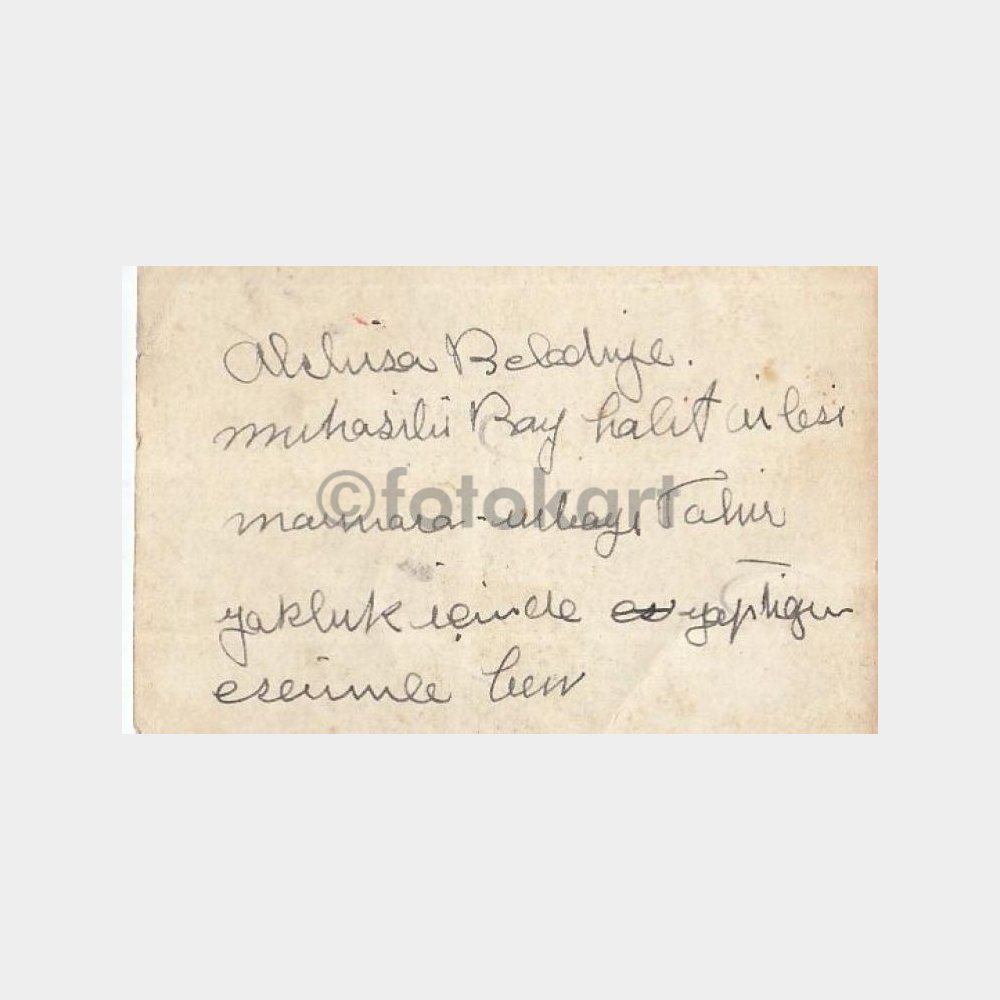 Akhisar Belediye.
muhasibi Bay halit ailesi
©fotokart
marmara Tahir
yokluk içinde yaptığım
eserimle ben